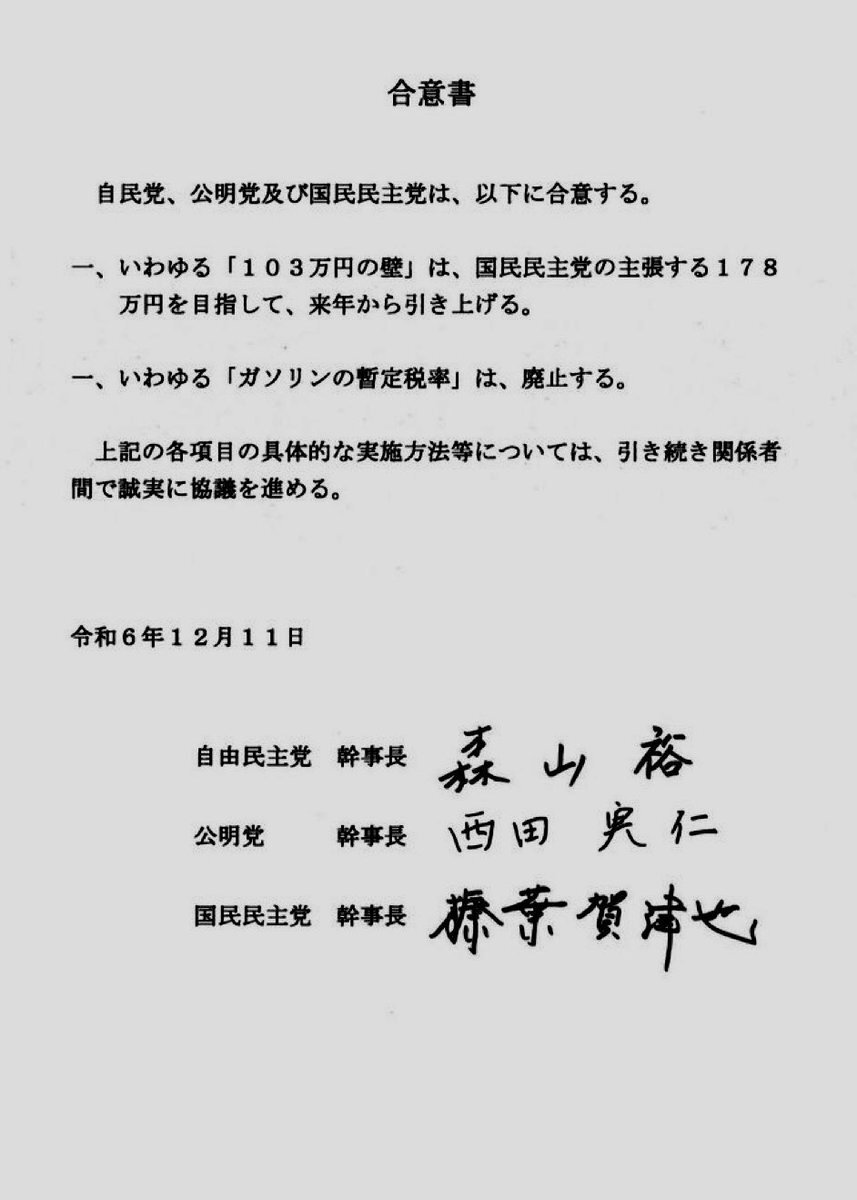 合意書
自民党、公明党及び国民民主党は、以下に合意する。
一、いわゆる「１０３万円の壁」は、国民民主党の主張する１７８
万円を目指して、来年から引き上げる。
一、いわゆる「ガソリンの暫定税率」は、廃止する。
上記の各項目の具体的な実施方法等については、引き続き関係者
間で誠実に協議を進める。
令和６年１２月１１日
自由民主党　幹事長　森山　裕
公明党　　　幹事長　西田　実仁
国民民主党　幹事長　榛葉賀津也